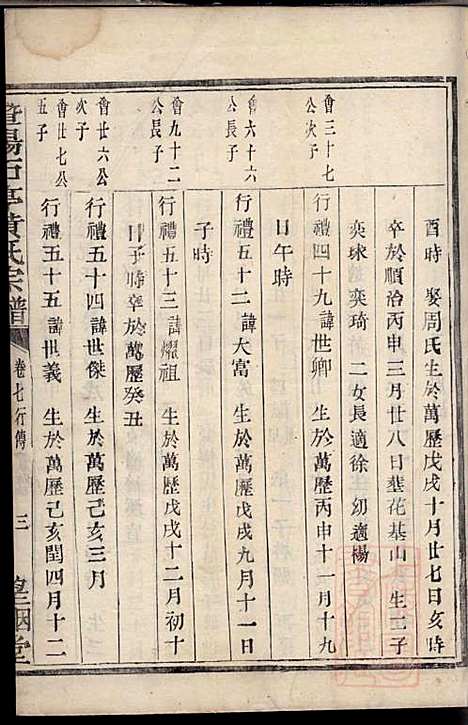 酉時　娶周氏生於萬歷戊戌十月廿七日亥時
卒於順治丙申三月廿八日葬花基山　生二子
奕球　奕琦　二女長適徐　幼適楊
會三十七
公次子
行禮四十九諱世卿　生於萬歷丙申十一月十九
日午時
會六十六
公長子
行禮五十二諱大富　生於萬歷戊戌九月十一日
子時
會九十二
公長子
行禮五十三諱燿祖　生於萬歷戊戌十二月初十
日子時卒於萬歷癸丑
會廿六公
次子
行禮五十四諱世傑　生於萬歷己亥三月
會廿七公
五子
行禮五十五諱世義　生於萬歷己亥閏四月十二
暨陽石亭黃氏宗譜
卷七行傳
三